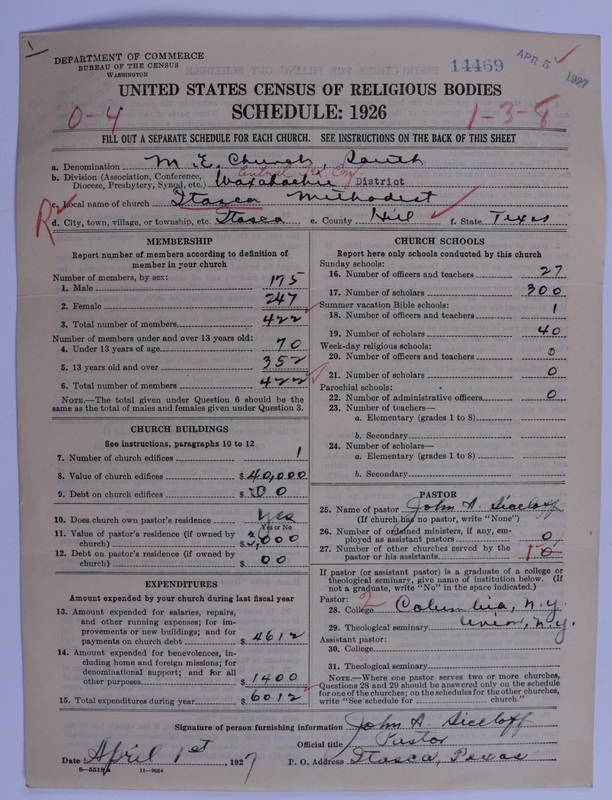 DEPARTMENT OF COMMERCE
BUREAU OF THE CENSUS
WASHINGTON
14469
APR 5 1927
UNITED STATES CENSUS OF RELIGIOUS BODIES
0-4
SCHEDULE: 1926
1-3-8
FILL OUT A SEPARATE SCHEDULE FOR EACH CHURCH. SEE INSTRUCTIONS ON THE BACK OF THIS SHEET
a. Denomination M. E. Church, South
Central Tex Conf
b. Division (Association, Conference, Diocese, Presbytery, Synod, etc.) Waxahachie District
c. Local name of church Itasca Methodist
R
d. City, town, village, or township, etc. Itasca e. County Hill f. State Texas
MEMBERSHIP
Report number of members according to definition of
member in your church
Number of members, by sex:
1. Male 175
2. Female 247
3. Total number of members 422
Number of members under and over 13 years old:
4. Under 13 years of age 70
5. 13 years old and over 352
6. Total number of members 422
NOTE.—The total given under Question 6 should be
same as the total of males and females given under Question 3.
CHURCH BUILDINGS
See instructions, paragraphs 10 to 12
7. Number of church edifices 1
8. Value of church edifices $40,000
9. Debt on church edifices $ 00
10. Does church own pastor's residence yes
Yes or No
11. Value of pastor's residence (if owned by
church) $ 3,000
12. Debt on pastor's residence (if owned by
church) $ 00
EXPENDITURES
Amount expended by your church during last fiscal year
13. Amount expended for salaries, repairs,
and other running expenses; for im-
provements or new buildings; and for
payments on church debt $ 4612
14. Amount expended for benevolences, in-
cluding home and foreign missions; for
denominational support; and for all
other purposes $ 1400
15. Total expenditures during year $ 6012
CHURCH SCHOOLS
Report here only schools conducted by this church
Sunday schools:
16. Number of officers and teachers 27
17. Number of scholars 300
Summer vacation Bible schools:
18. Number of officers and teachers 1
19. Number of scholars 40
Week-day religious schools:
20. Number of officers and teachers 0
21. Number of scholars 0
Parochial schools:
22. Number of administrative officers 0
23. Number of teachers—
a. Elementary (grades 1 to 8)
b. Secondary
24. Number of scholars—
a. Elementary (grades 1 to 8)
b. Secondary
PASTOR
25. Name of pastor John A. Siceloff
(If church has no pastor, write "None")
26. Number of ordained ministers, if any, em-
ployed as assistant pastors 0
27. Number of other churches served by the
pastor or his assistants 0
If pastor (or assistant pastor) is a graduate of a college or
theological seminary, give name of institution below. (If
not a graduate, write "No" in the space indicated.)
Pastor: 2
28. College Columbia, N.Y.
29. Theological seminary Union, N.Y.
Assistant pastor:
30. College
31. Theological seminary
NOTE.—Where one pastor serves two or more churches,
Questions 28 and 29 should be answered only on the schedule
for one of the churches; on the schedules for the other churches,
write "See schedule for church."
Signature of person furnishing information John A. Siceloff
Official title Pastor
Date April 1st, 1927 P. O. Address Itasca, Texas
11—9064